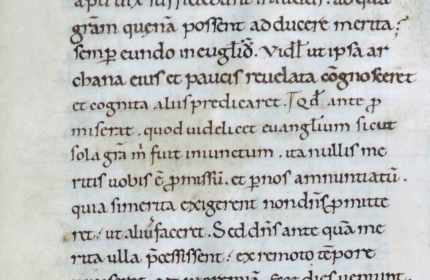 grām quenā possent adducere merita;
semp eundo in euglīō. Vidl' ut ipsa ar
chana eius et paucis reuelata cognosceret
et cognita aliis predicaret. Qd' ante p̄
miserat. quod uidelicet euanglium sicut
sola grā m̄ fuit iniunctum. ita nullis me
ritis uobis ē p̄missū. et pernos annuntiatū.
quia si merita exigerent non dn̄s p̄mitte
ret. ut aliꝰ faceret. Sed dn̄s ante quā me
rita ulla p̄cessissent. ex remoto tēpore